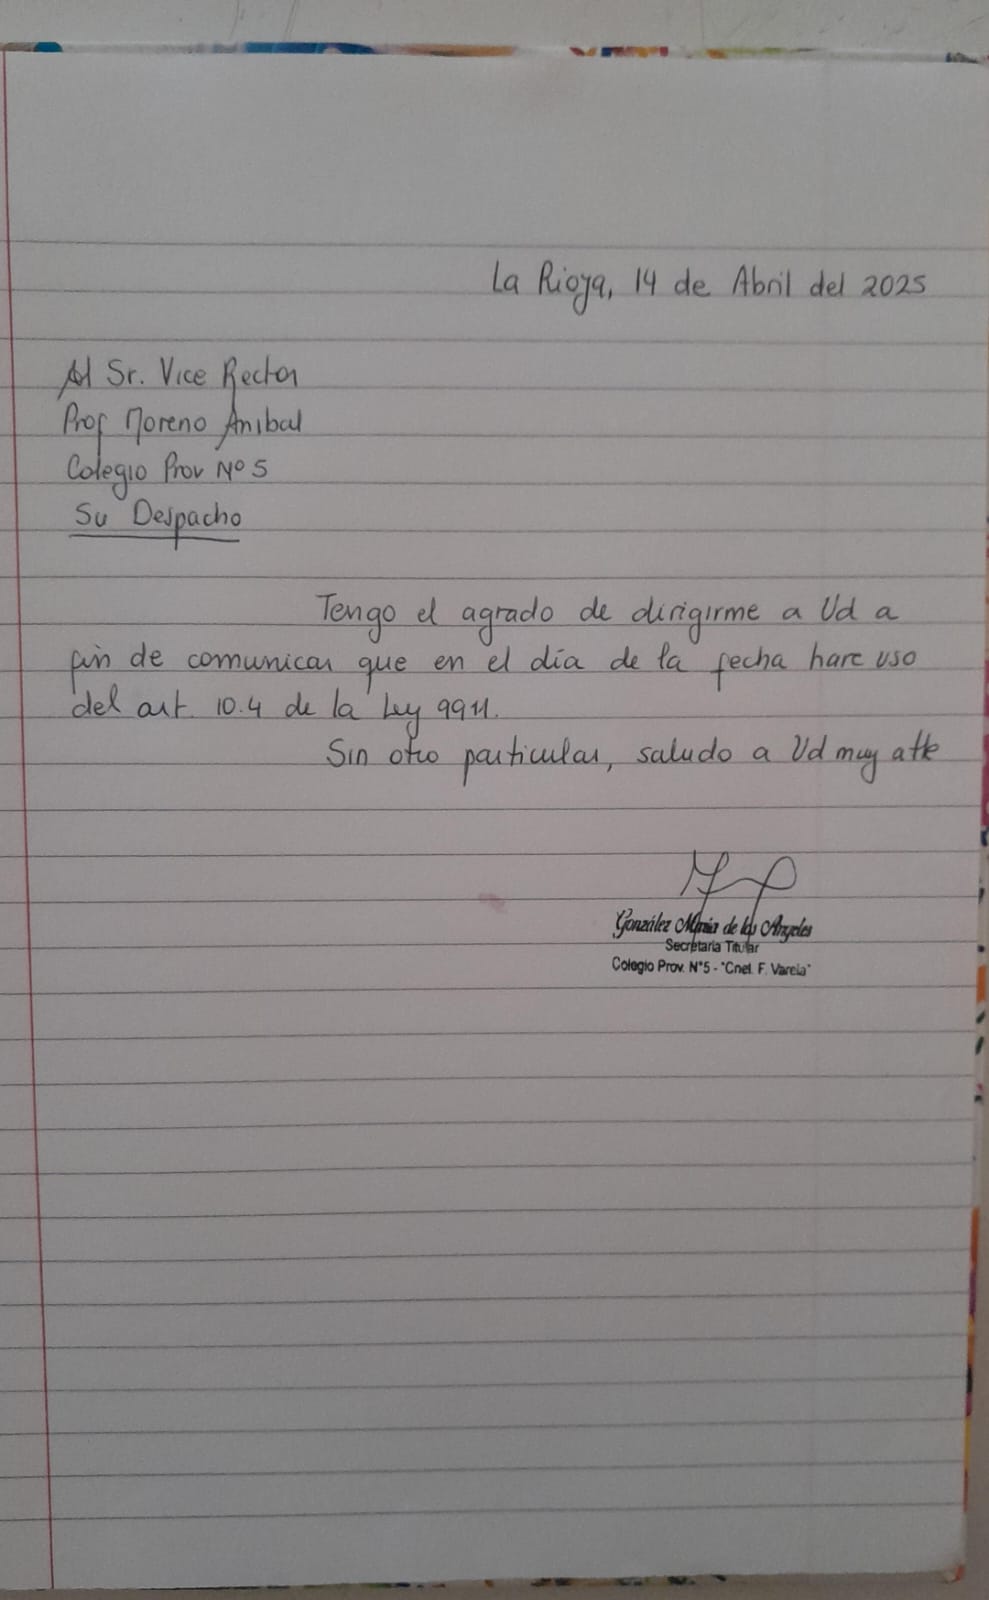 La Rioja, 14 de Abril del 2025
Al Sr. Vice Rector
Prof Moreno Anibal
Colegio Prov Nº 5
Su Despacho
Tengo el agrado de dirigirme a Ud a
fin de comunicar que en el día de la fecha hare uso
del art. 10.4 de la Ley 9911.
Sin otro particular, saludo a Ud muy atte
González María de los Angeles
Secretaria Titular
Colegio Prov. N°5 - "Cnel. F. Varela"